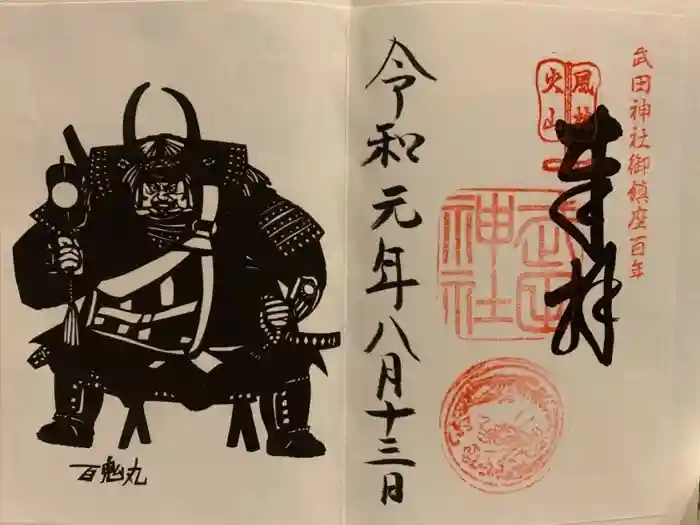 武田神社御鎮座百年
風林
火山
奉拝
武田
神社
令和元年八月十三日
百鬼丸